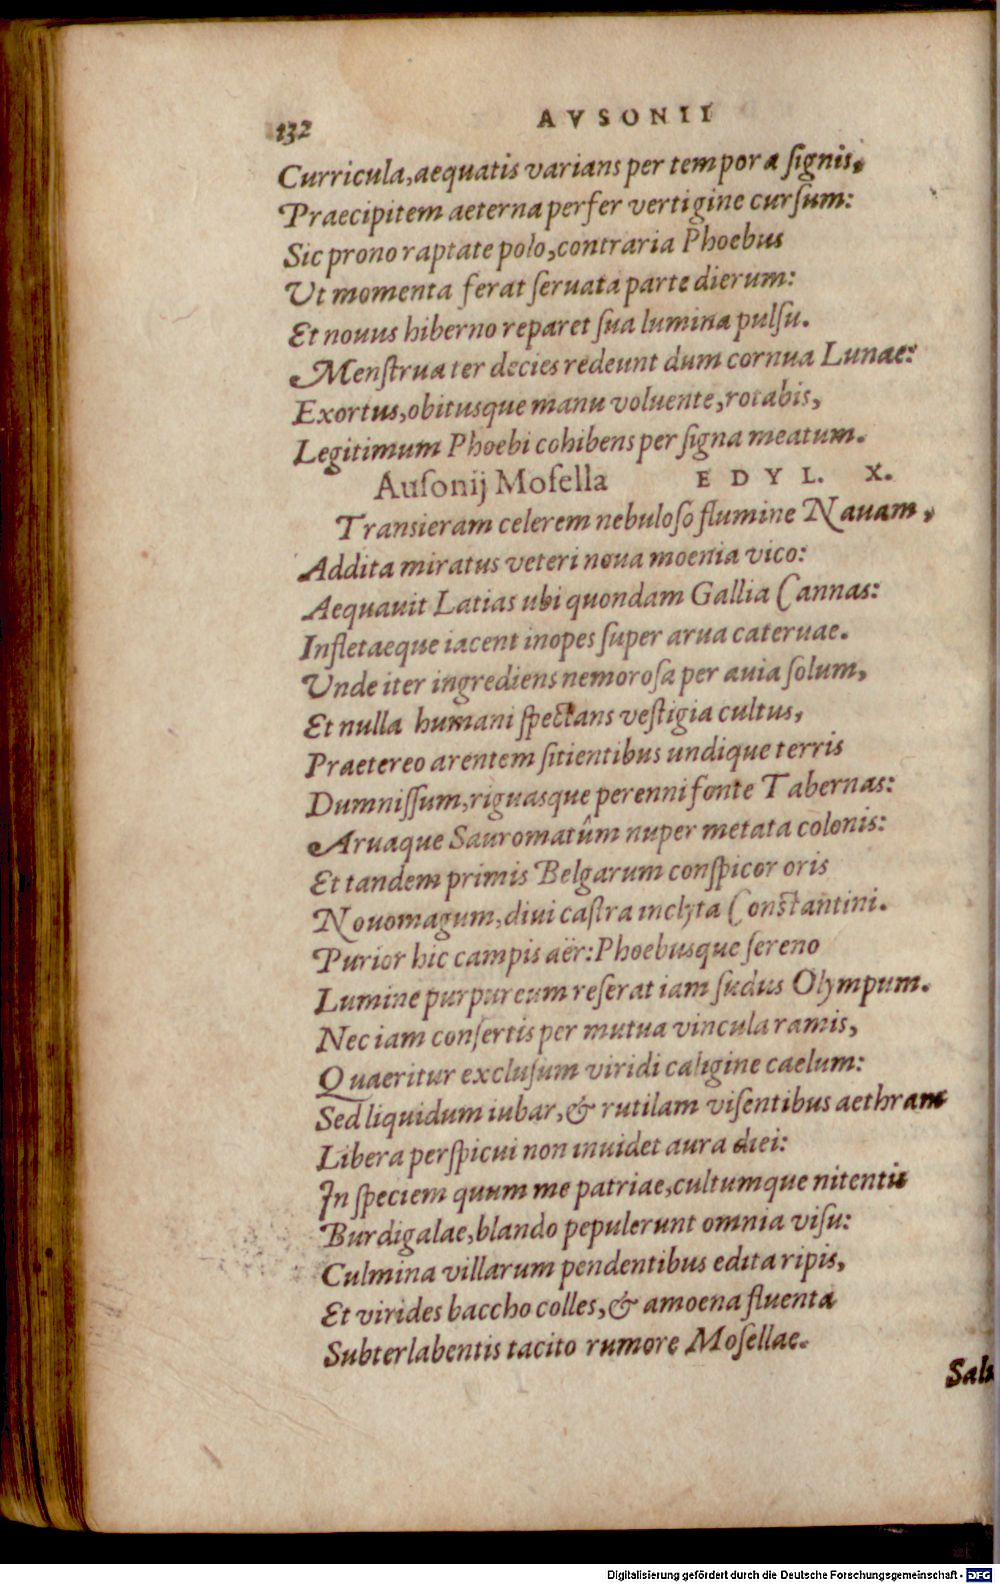 132 AVSONII
Curricula, aequatis varians per tempora ſignis,
Praecipitem aeterna perfer vertigine curſum:
Sic prono raptate polo, contraria Phoebus
Ut momenta ferat ſeruata parte dierum:
Et nouus hiberno reparet ſua lumina pulſu.
Menſtrua ter decies redeunt dum cornua Lunae:
Exortus, obitusque manu voluente, rotabis,
Legitimum Phoebi cohibens per ſigna meatum.
Auſonij Moſella EDYL. X.
Transieram celerem nebuloſo flumine Nauam,
Addita miratus veteri noua moenia vico:
Aequauit Latias ubi quondam Gallia Cannas:
Infletaeque iacent inopes ſuper arua cateruae.
Unde iter ingrediens nemoroſa per auia ſolum,
Et nulla humani ſpectans veſtigia cultus,
Praetereo arentem ſitientibus undique terris
Dumniſſum, riguasque perenni fonte Tabernas:
Aruaque Sauromatûm nuper metata colonis:
Et tandem primis Belgarum conſpicor oris
Nouomagum, diui caſtra inclyta Conſtantini.
Purior hic campis aër: Phoebusque ſereno
Lumine purpureum reſerat iam ſudus Olympum.
Nec iam conſertis per mutua vincula ramis,
Quaeritur excluſum viridi caligine caelum:
Sed liquidum iubar, & rutilam viſentibus aethram
Libera perſpicui non inuidet aura diei:
In ſpeciem quum me patriae, cultumque nitentis
Burdigalae, blando pepulerunt omnia viſu:
Culmina villarum pendentibus edita ripis,
Et virides baccho colles, & amoena fluenta
Subterlabentis tacito rumore Moſellae.
Sal
Digitalisierung gefördert durch die Deutsche Forschungsgemeinschaft - DFG